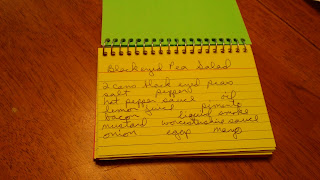 Blackeyed Pea Salad
2 cans black eyed peas
salt pepper
hot pepper sauce oil
lemon juice pimento
bacon liquid smoke
mustard worcestershire sauce
onion eggs mayo